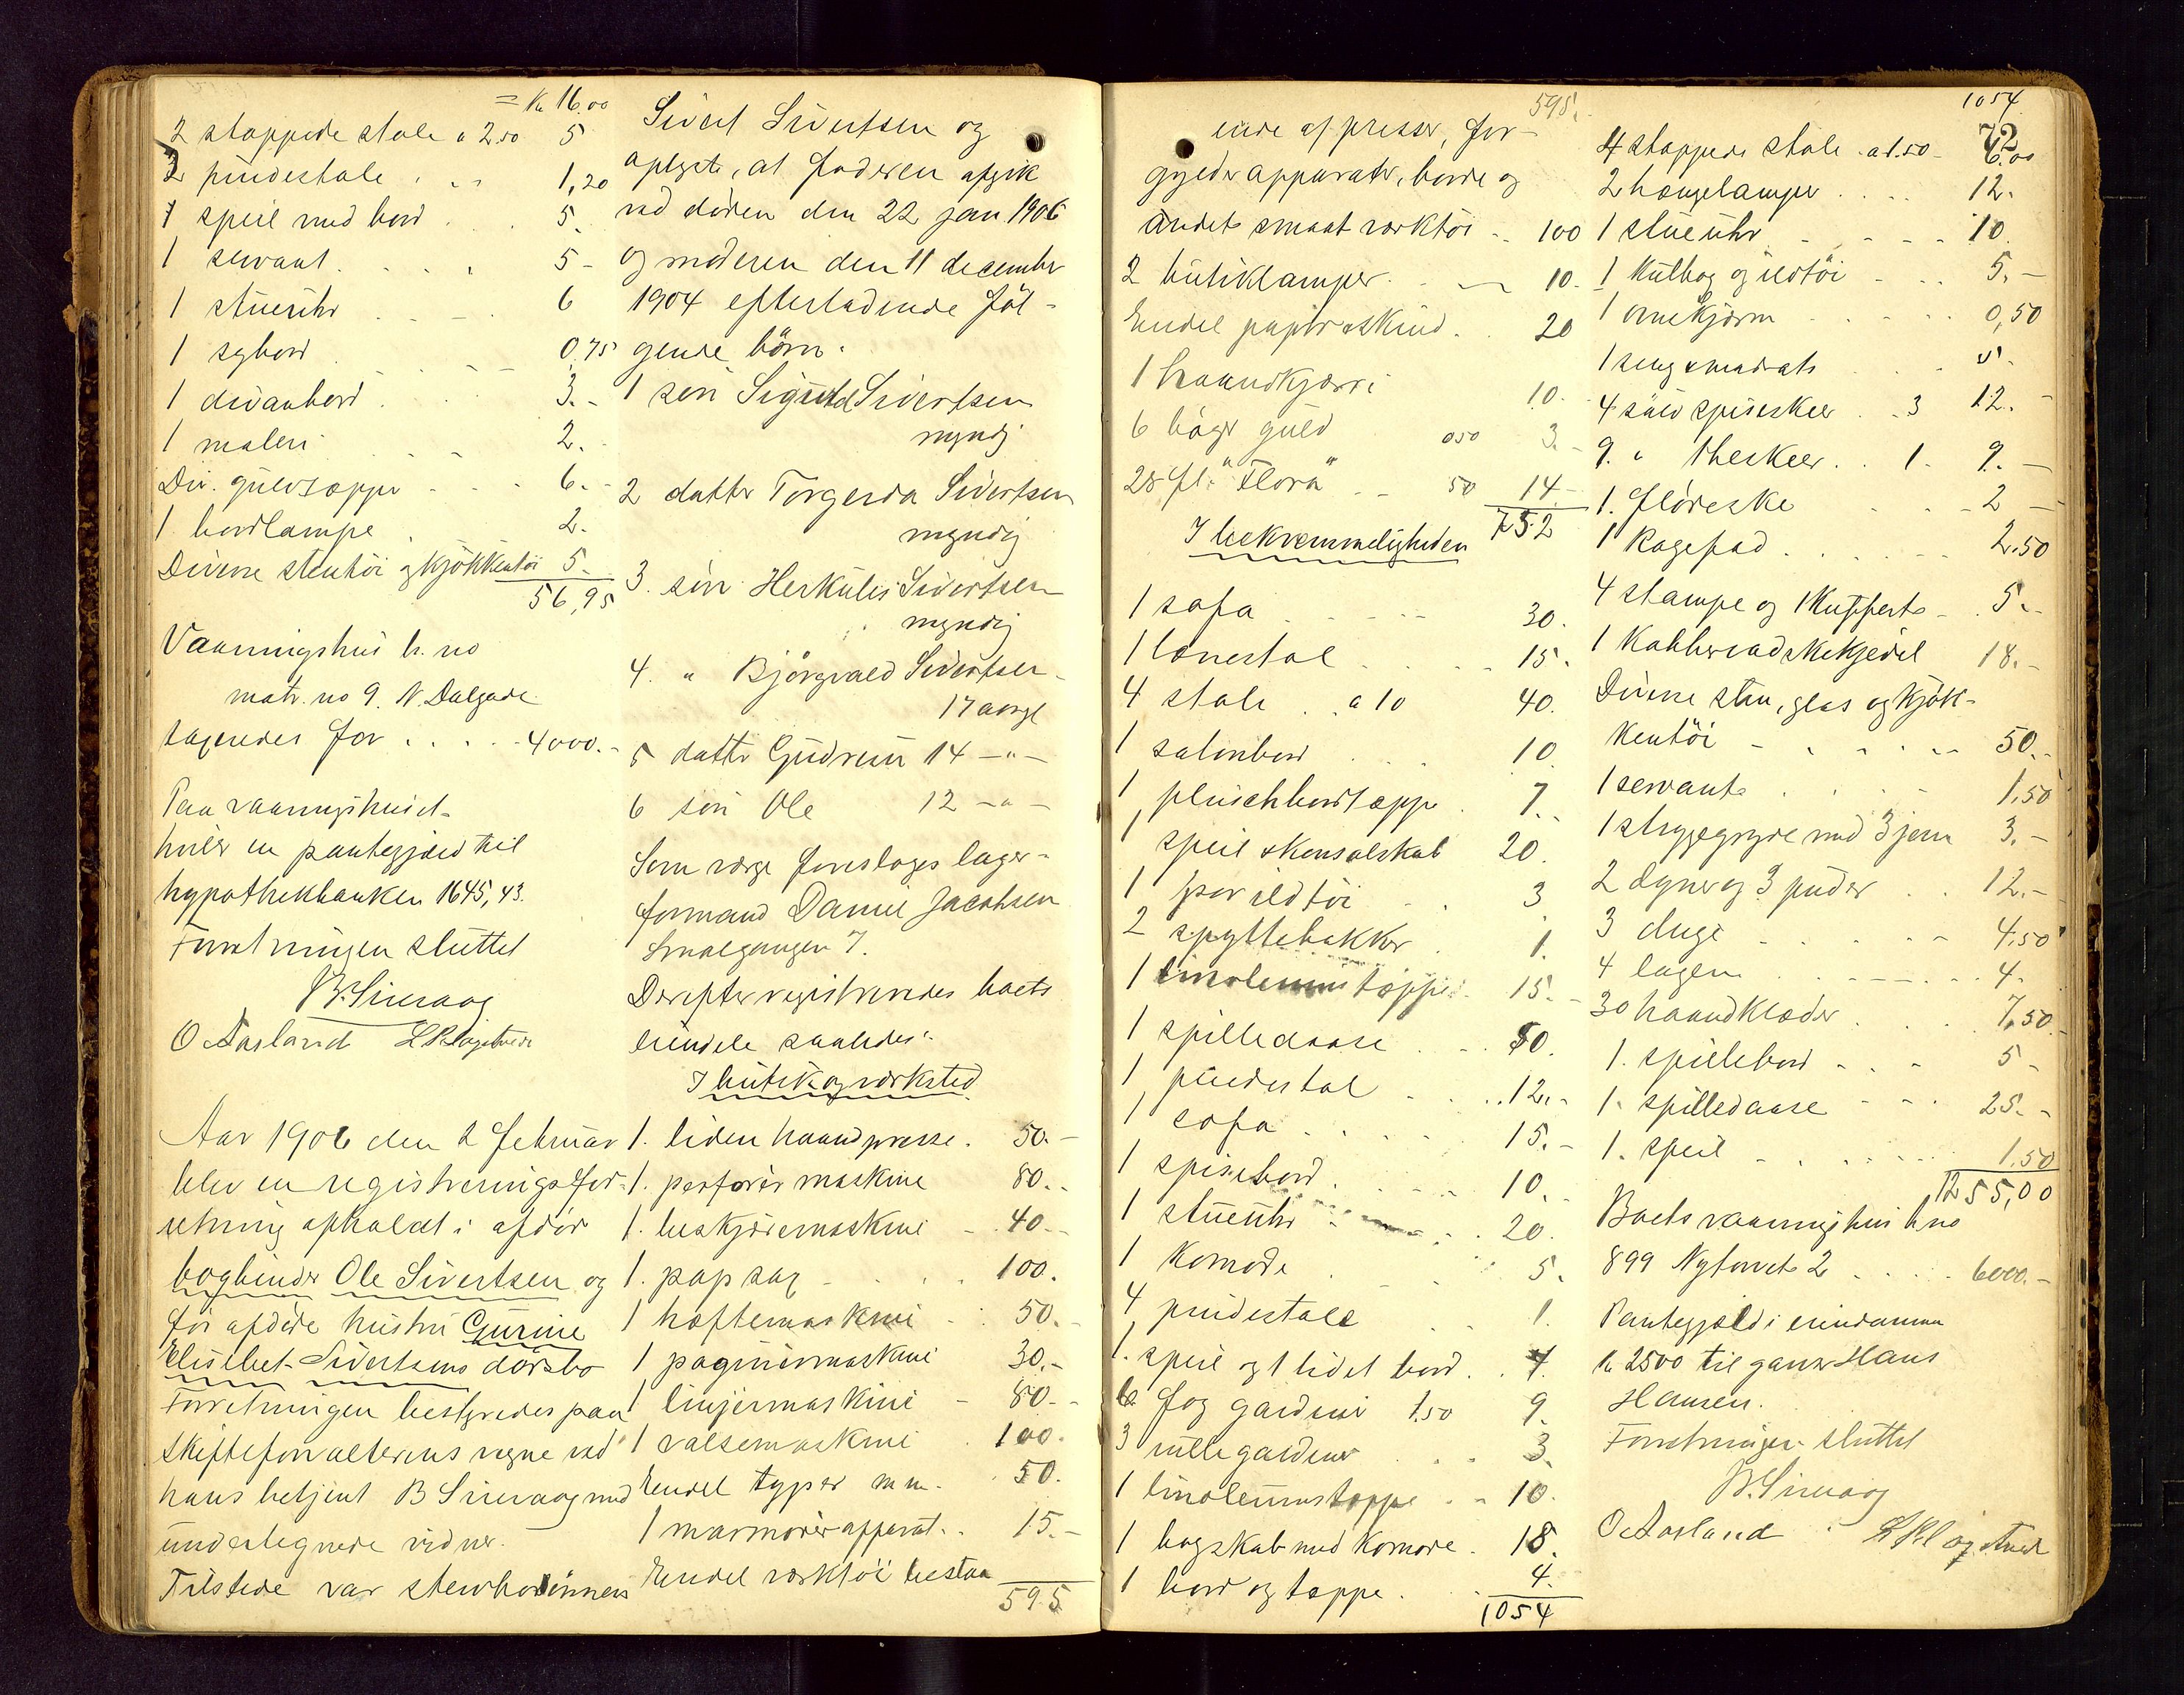 = Kr 16.00
2 stoppede stole a 2.50 5
3 pindestole 1,20
1 speil med bord 5.
1 servant 5 -
1 stueuhr 6
1 sybord 0.75
1 divanbord 3. -
1 maleri 2.
Div. gulvtæpper 6. -
1 bordlampe 2.
Diverse stentöi og kjökkentöi 5. -
56,95
Vaaningshus b. no
matr. no 9. N. Dalgade
taxeredes for 4000. -
Paa vaaningshuset
hviler en pantegjæld til
hypothekbanken 1645,43.
Forretningen sluttet
B. Sirevaag
O Aasland
Aar 1906 den 2 februar
blev en registreringsfor-
retning afholdt i afdöde
bogbinder Ole Sivertsen og
för afdöde hustru Gurine
Elisebet Sivertsens dödsbo
Forretningen bestyredes paa
skifteforvalterens vegne ved
hans betjent B Sirevaag med
undertegnede vidner.
Tilstede var stervboinnens
Sivert Sivertsen og
oplyste, at faderen afgik
ved döden den 22 jan. 1906
og moderen den 11 december
1904 efterladende föl-
gende börn.
1 sön Sigurd Sivertsen
myndig
2 datter Torgerda Sivertsen
myndig
3. sön Herkules Sivertsen
myndig
4. " Björgvald Sivertsen
17 aar gl
5 datter Gudrun 14 - " -
6 sön Ole 12 - " -
Som værge foresloges lager-
formand Daniel Jacobsen
Smalgangen 7.
Derefter registreredes boets
eiendele saaledes:
I butik og værksted
1. liden haandpresse. 50. -
1. perforér maskine 80. -
1. beskjæremaskine - 40. -
1. papsax 100.
1 heftemaskine 50. -
1 paginérmaskine 30. -
1 linjermaskine - 80. -
1 valsemaskine 100.
Endel typer m m. 50.
1 marmorér apparat 15. -
Endel værktöi bestaa
595
595.
ende af presser, for-
gylderapparater, borde og
andet smaat værktöi 100
2 butiklamper 10. -
Endel papir & skind 20
1 haandkjærre 10. -
6 böger guld 050 3. -
28 fl. "Flora" 50 14 -
752
I bekvemmeligheden
1 sofa 30.
1 lænestol 15.
4 stole a 10 40.
1 salonbord 10.
1 pluschbordtæppe 7. -
1 speil & konsolskab 20.
1 par ildtöi 3
2 spyttebakker 1.
1 linoleumstæppe 15. -
1 spilledaase 50.
1 pindestol 12. -
1 sofa 15. -
1 spisebord 10. -
1 stueuhr 20.
1 komode 5.
4 pindestole 1.
1. speil og 1 lidet bord. 4.
6 fag gardiner 1.50 9.
3 rullegardiner 3.
1 linoleumstæppe 10.
1 bogskab med komode 18.
1 bord og tæppe 4.
1054
1054
72
4 stoppede stole a 1.50 - 6.00
2 hængelamper 12.
1 stueuhr 10.
1 kulbox og ildtöi 5. -
1 ovnskjærm 0,50
1 seng & madrats 5. -
4 sölv spiseskeer 3 12. -
9. " theskeer. 1. 9. -
1. flödeske 2 -
1 kagefad 2.50
4 stampe og 1 kuffert 5. -
1 kobbervadskekjedel 18. -
Diverse sten, glas og kjök-
kentöi 50. -
1 servante 1.50
1 strygegryde med 3 jern 3. -
2 dyner og 3 puder 12. -
3 duge 4.50
4 lagen 4.
30 haandklæder 7.50
1. spillebord 5 -
1. spilledaase 25. -
1. speil 1.50
1255,00
Boets vaaningshus b no
899 Nytorvet 2 6000. -
Pantegjæld i eiendommen
kr 2500 til garver Hans
Hansen.
Forretningen sluttet
B. Sirevaag
O Aasland